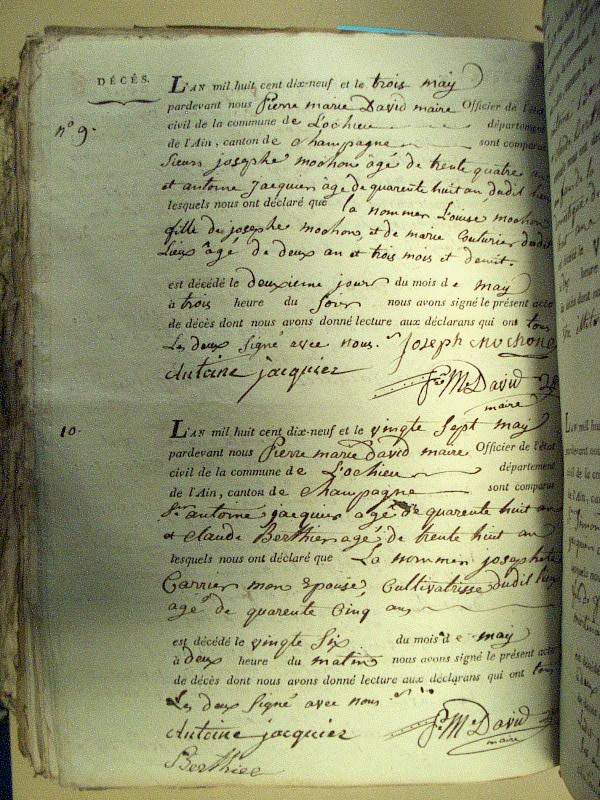 DÉCÈS.
n° 9.
L'AN mil huit cent dix-neuf et le trois may
pardevant nous Pierre marie David maire Officier de l'état
civil de la commune de Lochieu département
de l'Ain, canton de Champagne sont comparus
Sieurs josephe mochon âgé de trente quatre an
et antoine Jacquier âgé de quarente huit an, dudit lieu
lesquels nous ont déclaré que la nommer Louise mochon
fille du josephe mochon, et de marie Couturier dudit
Lieux âgé de deux an et trois mois et demit.
est décédé le deuxieme jour du mois de may
à trois heure du soir nous avons signé le présent acte
de décès dont nous avons donné lecture aux déclarans qui ont tous
Les deux signé avec nous. Joseph Mochon
Antoine jacquier
P.re M. David
maire
10.
L'AN mil huit cent dix-neuf et le vingte Sept may
pardevant nous Pierre marie David maire Officier de l'état
civil de la commune de Lochieu département
de l'Ain, canton de Champagne sont comparus
Sr. antoine jacquier âgé de quarente huit an
et Claude Berthier agé de trente huit an
lesquels nous ont déclaré que La nommer josephete
Carrier mon Epouse, Cultivatrisse dudit lieu
agé de quarente Cinq ans
est décédé le vingte Six du mois de may
à deux heure du matin nous avons signé le présent acte
de décès dont nous avons donné lecture aux déclarans qui ont tous
Les deux signé avec nous
Antoine jacquier
P.re M. David
maire
Berthier